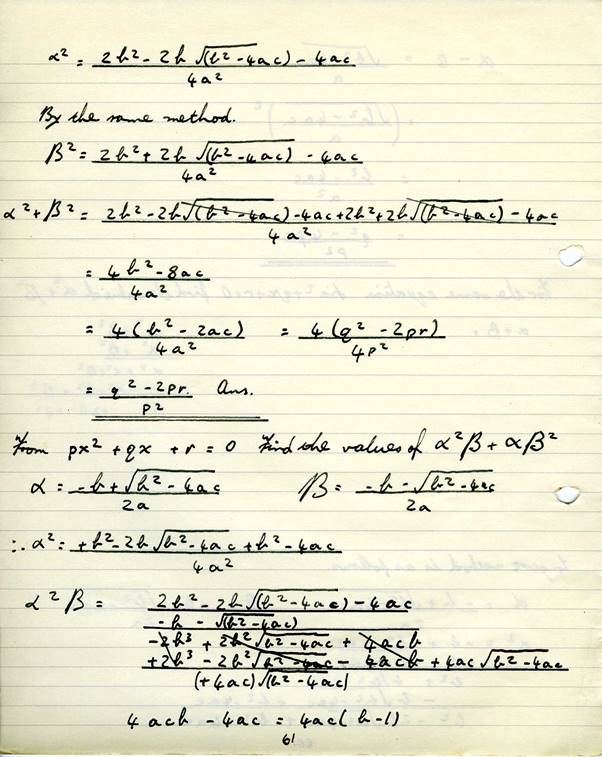 α² = 2b² - 2b √(b² - 4ac) - 4ac
4a²
By the same method.
β² = 2b² + 2b √(b² - 4ac) - 4ac
4a²
α² + β² = 2b² - 2b √(b² - 4ac) - 4ac + 2b² + 2b √(b² - 4ac) - 4ac
4a²
= 4b² - 8ac
4a²
= 4(b² - 2ac) = 4(q² - 2pr)
4a² 4p²
= q² - 2pr. Ans.
p²
From px² + qx + r = 0 Find the values of α²β + αβ²
α = -b + √b² - 4ac β = -b - √b² - 4ac
2a 2a
∴ α² = + b² - 2b √b² - 4ac + b² - 4ac
4a²
α²β = 2b² - 2b √(b² - 4ac) - 4ac
-b - √(b² - 4ac)
-2b³ + 2b² √b² - 4ac + 4acb
+2b³ - 2b² √b² - 4ac - 4acb + 4ac √b² - 4ac
(+4ac) √(b² - 4ac)
4acb - 4ac = 4ac(b - 1)
61